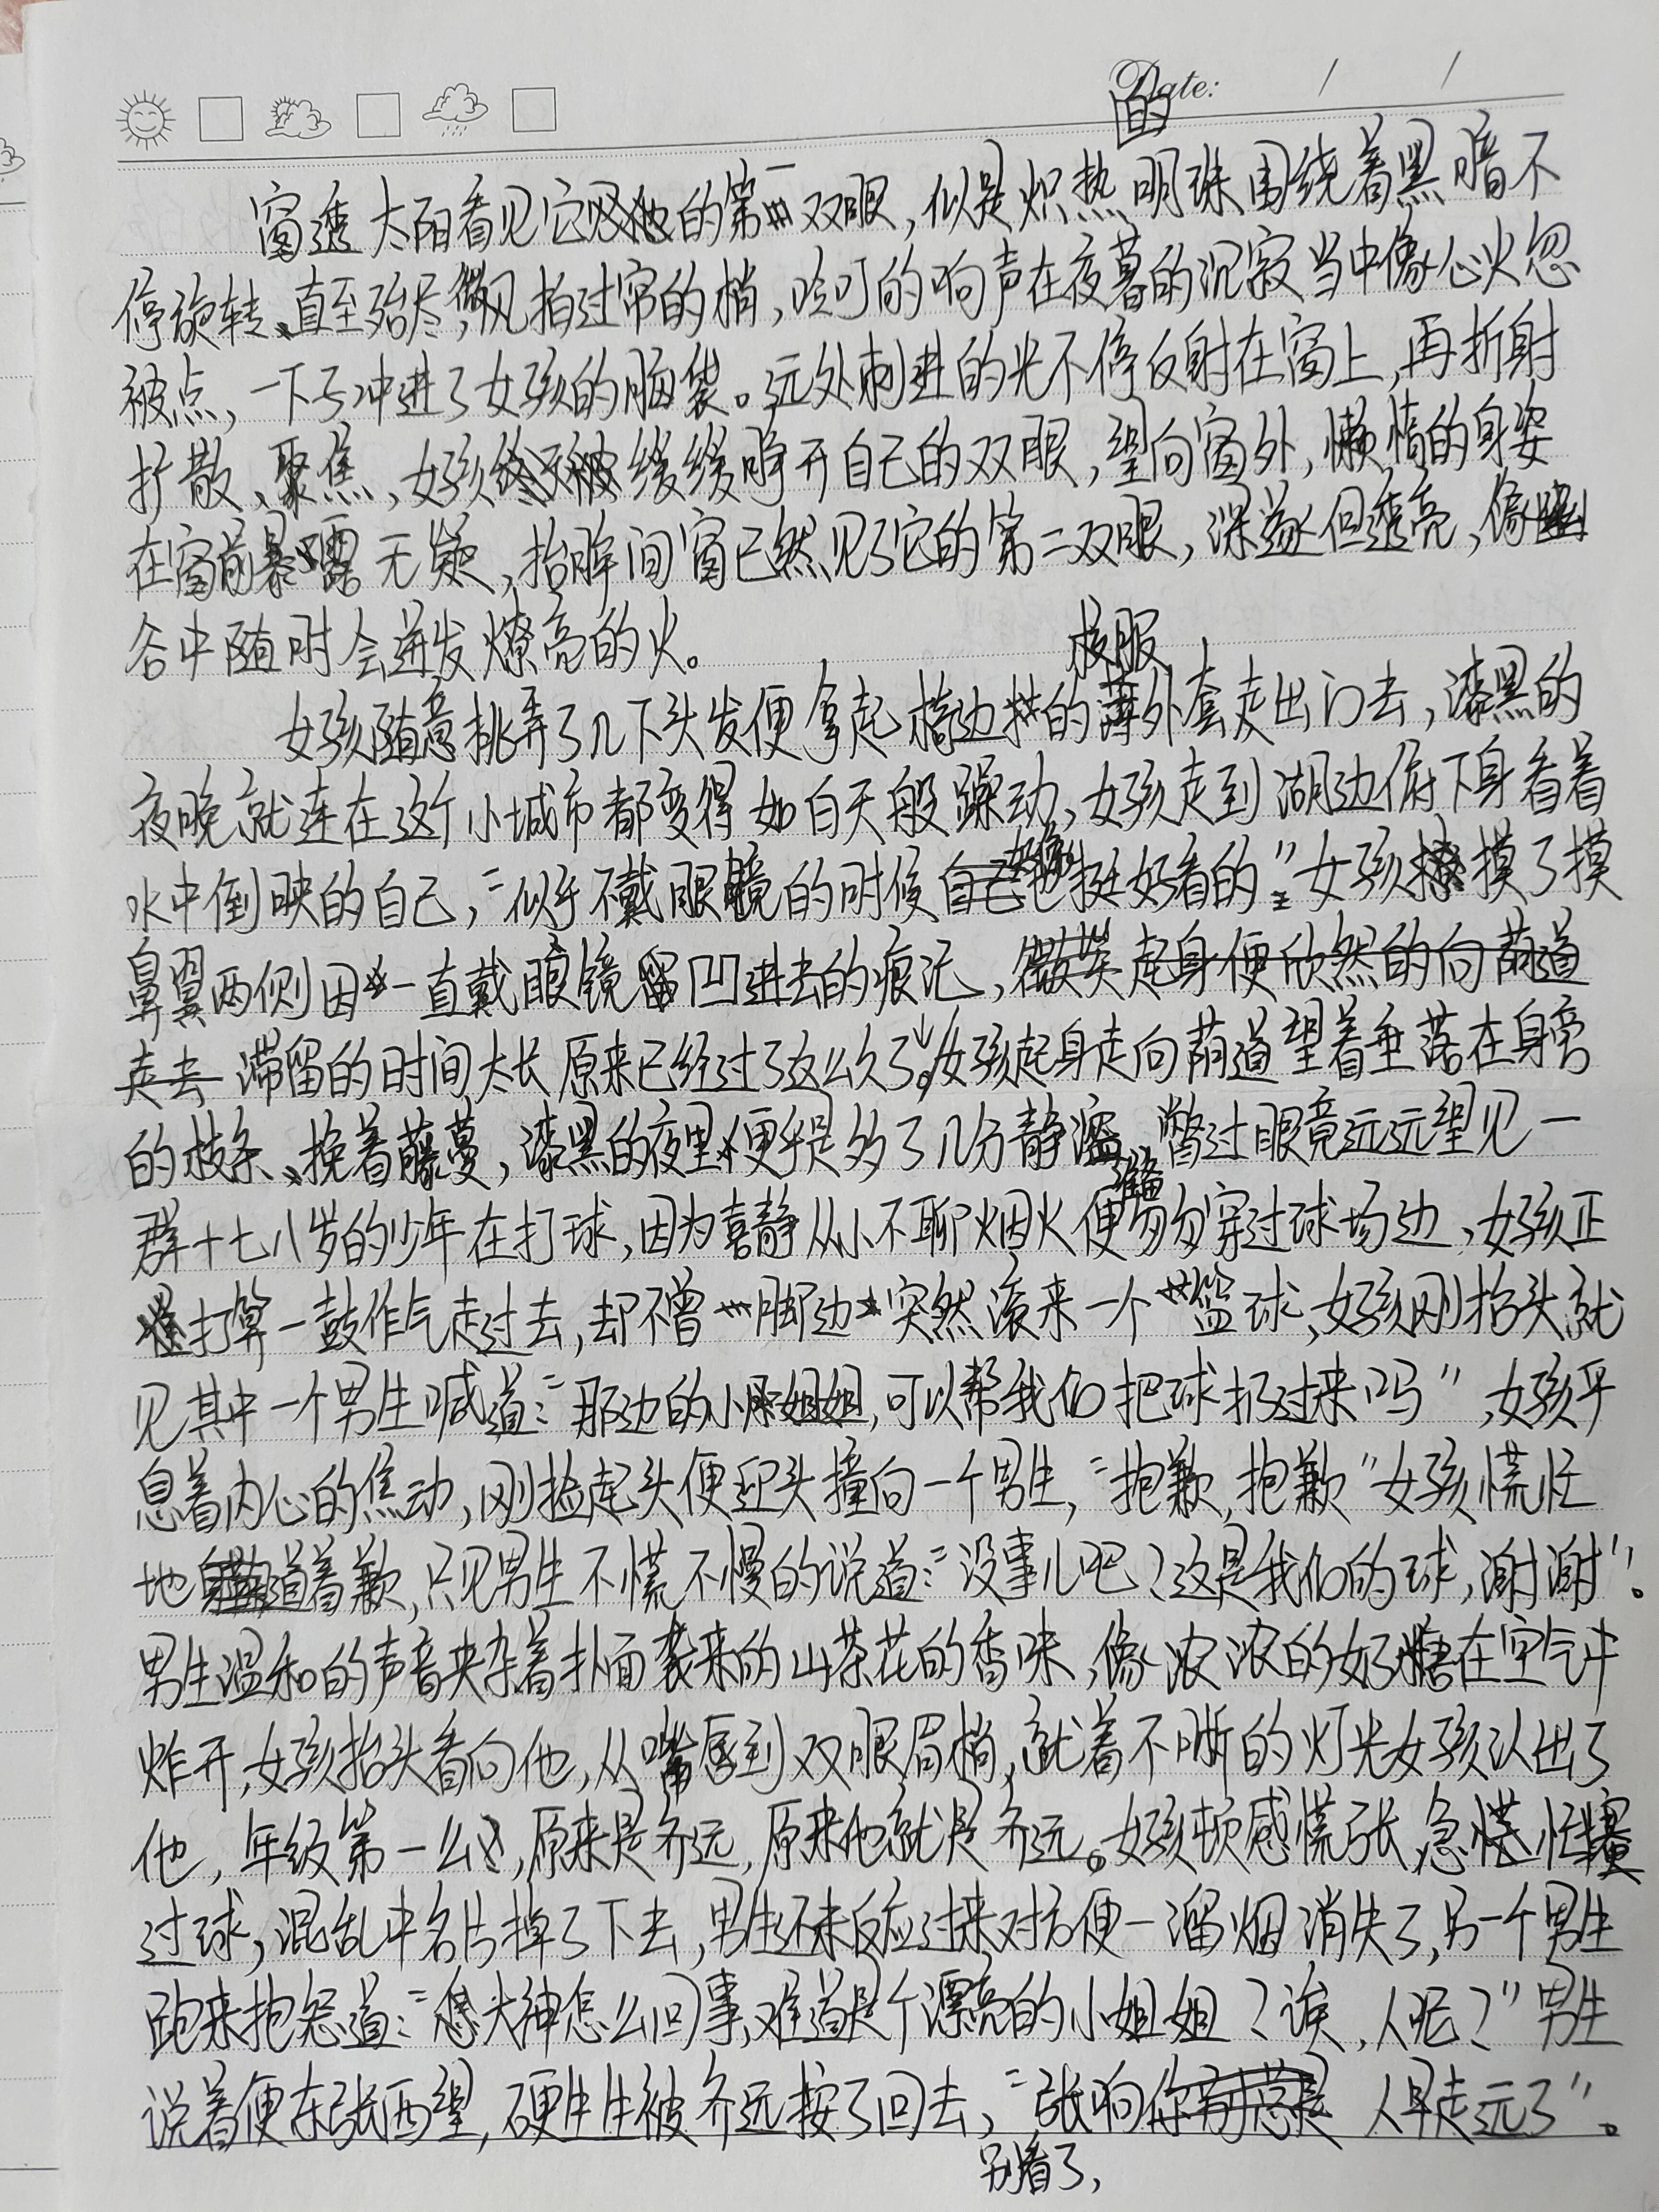 Date: / /
窗透太阳看见它的第一双眼，似是炽热的明珠围绕着黑暗不
停旋转、直至殆尽，微风拍过帘的梢，吃叮的响声在夜暮的沉寂当中像心火忽
被点，一下子冲进了女孩的脑袋。远处刺进的光不停反射在窗上，再折射
扩散、聚焦，女孩缓缓睁开自己的双眼，望向窗外，懒惰的身姿
在窗前暴露无疑，抬眸间窗已然见了它的第二双眼，深邃但透亮，像幽
谷中随时会迸发燎亮的火。
女孩随意挑弄了几下头发便拿起椅边的校服外套走出门去，漆黑的
夜晚就连在这个小城市都变得如白天般躁动、女孩走到湖边俯下身看着
水中倒映的自己，“似乎不戴眼镜的时候挺好看的”女孩摸了摸
鼻翼两侧因一直戴眼镜凹进去的痕记，微笑起身便欣然的向荫道
走去 滞留的时间太长原来已经过了这么久了。女孩起身走向荫道望着垂落在身旁
的枝条、挽着藤蔓，漆黑的夜里便于是多了几分静谧、瞥过眼竟远远望见一
群十七八岁的少年在打球，因为喜静从小不聊烟火便准备匆匆穿过球场边、女孩正
打算一鼓作气走过去，却不曾脚边突然滚来一个篮球、女孩刚抬头就
见其中一个男生喊道：“那边的小姐姐，可以帮我们把球扔过来吗”，女孩平
息着内心的焦动，刚捡起头便迎头撞向一个男生，“抱歉，抱歉”女孩慌忙
地道着歉，只见男生不慌不慢的说道：“没事儿吧？这是我们的球，谢谢”。
男生温和的声音夹杂着扑面袭来的山茶花的香味，像浓浓的奶糖在空气中
炸开，女孩抬头看向他，从嘴唇到双眼眉梢，就着不晰的灯光女孩认出了
他，年级第一么，原来是齐远，原来他就是齐远。女孩顿感慌张，急慌忙塞
过球，混乱中名片掉了下去，男生还未反应过来对方便一溜烟消失了，另一个男生
跑来抱怨道：“大神怎么回事，难道是个漂亮的小姐姐？诶，人呢？”男生
说着便东张西望，硬生生被齐远按了回去，“张响别看了，人早走远了”。